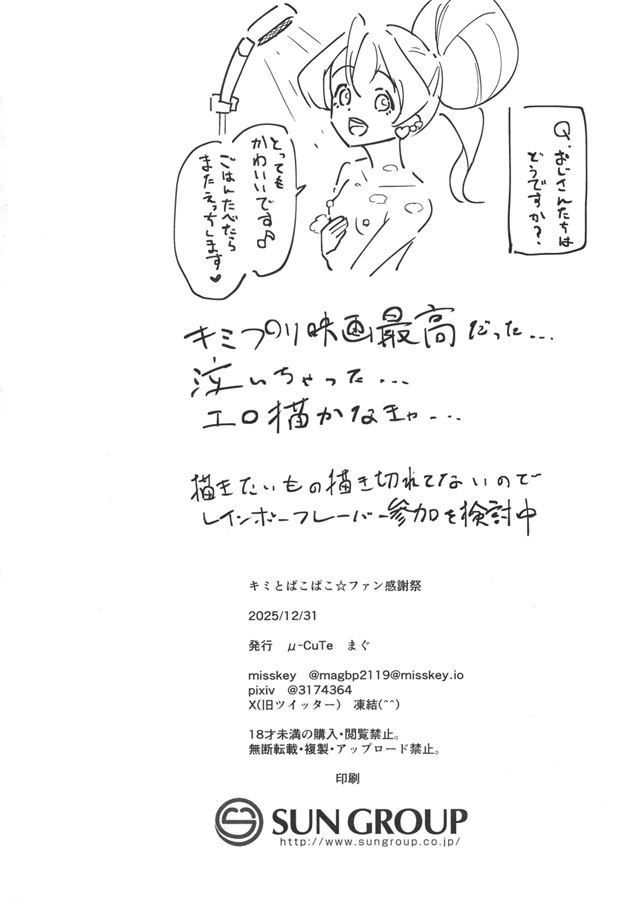 Q.おじさんたちは
どうですか?
とっても
かわいいです♫
ごはんたべたら
またえっちします♥
キミプリ映画最高だった...
泣いちゃった...
エロ描かなきゃ...
描きたいもの描き切れてないので
レインボーフレーバー参加を検討中
キミとぱこぱこ☆ファン感謝祭
2025/12/31
発行 μ-CuTe まぐ
misskey @magbp2119@misskey.io
pixiv @3174364
X(旧ツイッター) 凍結(^^)
18才未満の購入・閲覧禁止。
無断転載・複製・アップロード禁止。
印刷
SUN GROUP
http://www.sungroup.co.jp/